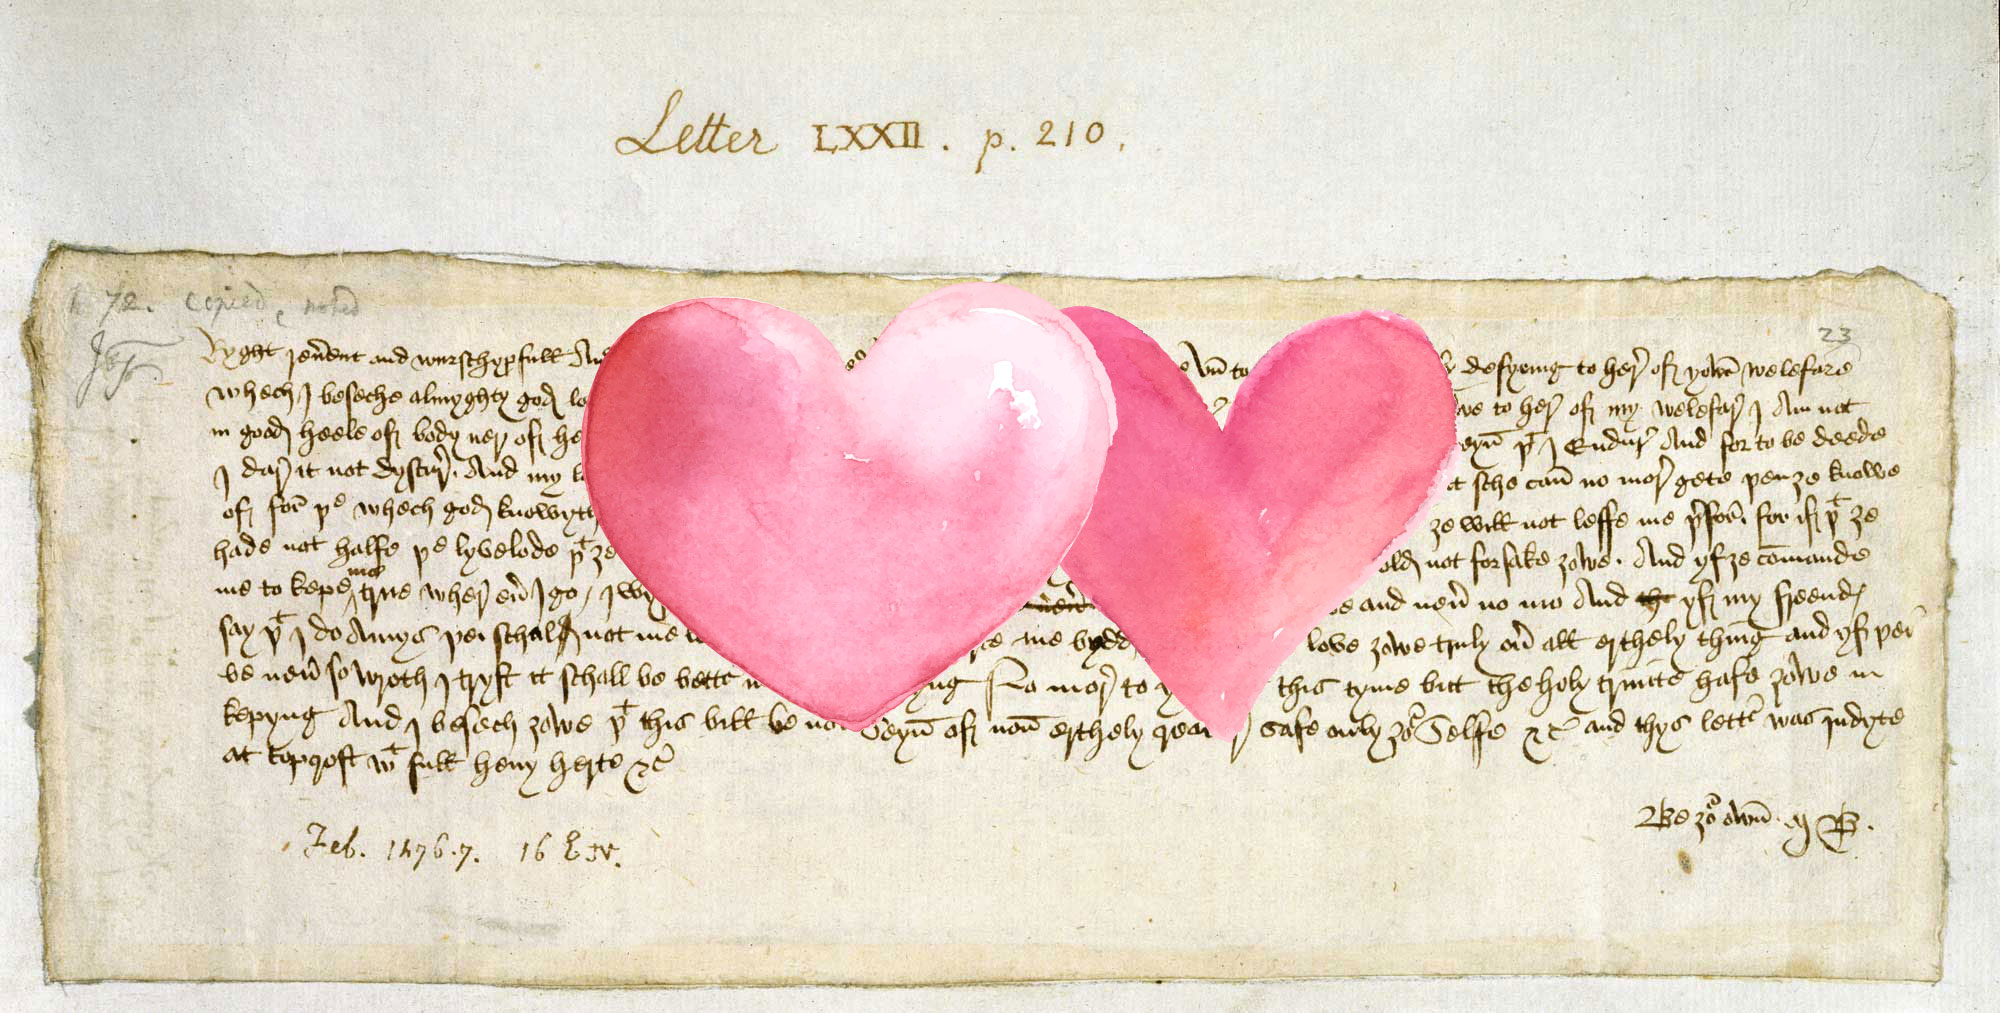 Letter LXXII. p. 210.
72. copied, noted
23
Ryght reuerent and wurschypfull And desyring to her of yowr welefare
whech I beseche almyghty god to her of my welefar I Am not
in good heele of body ner of þt I Endur And for to be deede
I dar it not dyscur. And my sche can no mor gete þen ze knowe
of for þe whech god knowyth ze will not leffe me þerfor. for if þt ze
hade not halfe þe lyvelode þt ze not forsake zowe. And yf ze comande
me to kepe me true wher euer I go and neuer no mo And yf my freendz
say þt I do Amys þei schal not me me bydd love zowe truly ouer all erthely thing and yf þei
be neuer so wroth I tryst it schall be bette No mor to this tyme bitt the holy trinite hafe zowe in
kepyng And I besech zowe þt this bill be not seyn of non erthely safe only zour Selfe &c and thys letter was indyte
at topcroft wt full hevy herte &c
Be zour own M B.
Feb. 1476.7. 16 E. IV.